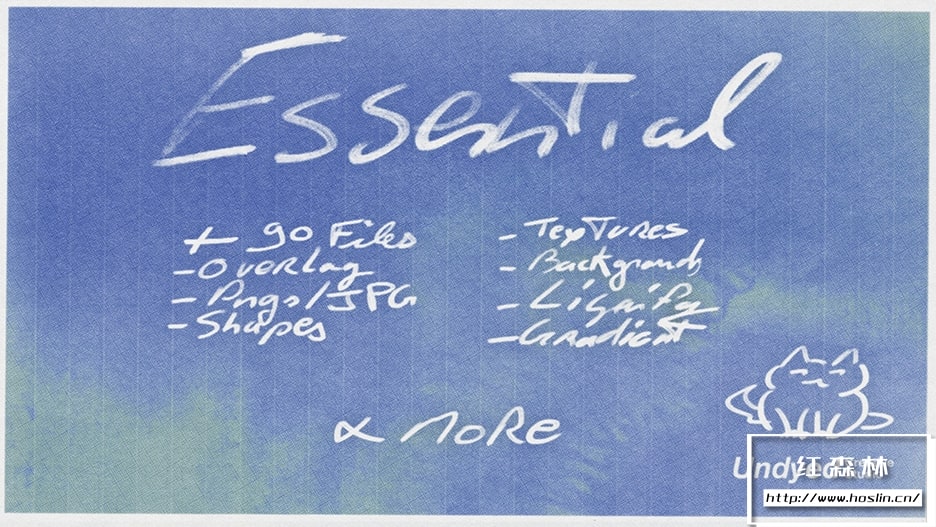 Essential
+ 90 Files
- Overlay
- Pngs/JPG
- Shapes
- Textures
- Backgrounds
- Gradient
& more
红森林
http://www.hoslin.cn/